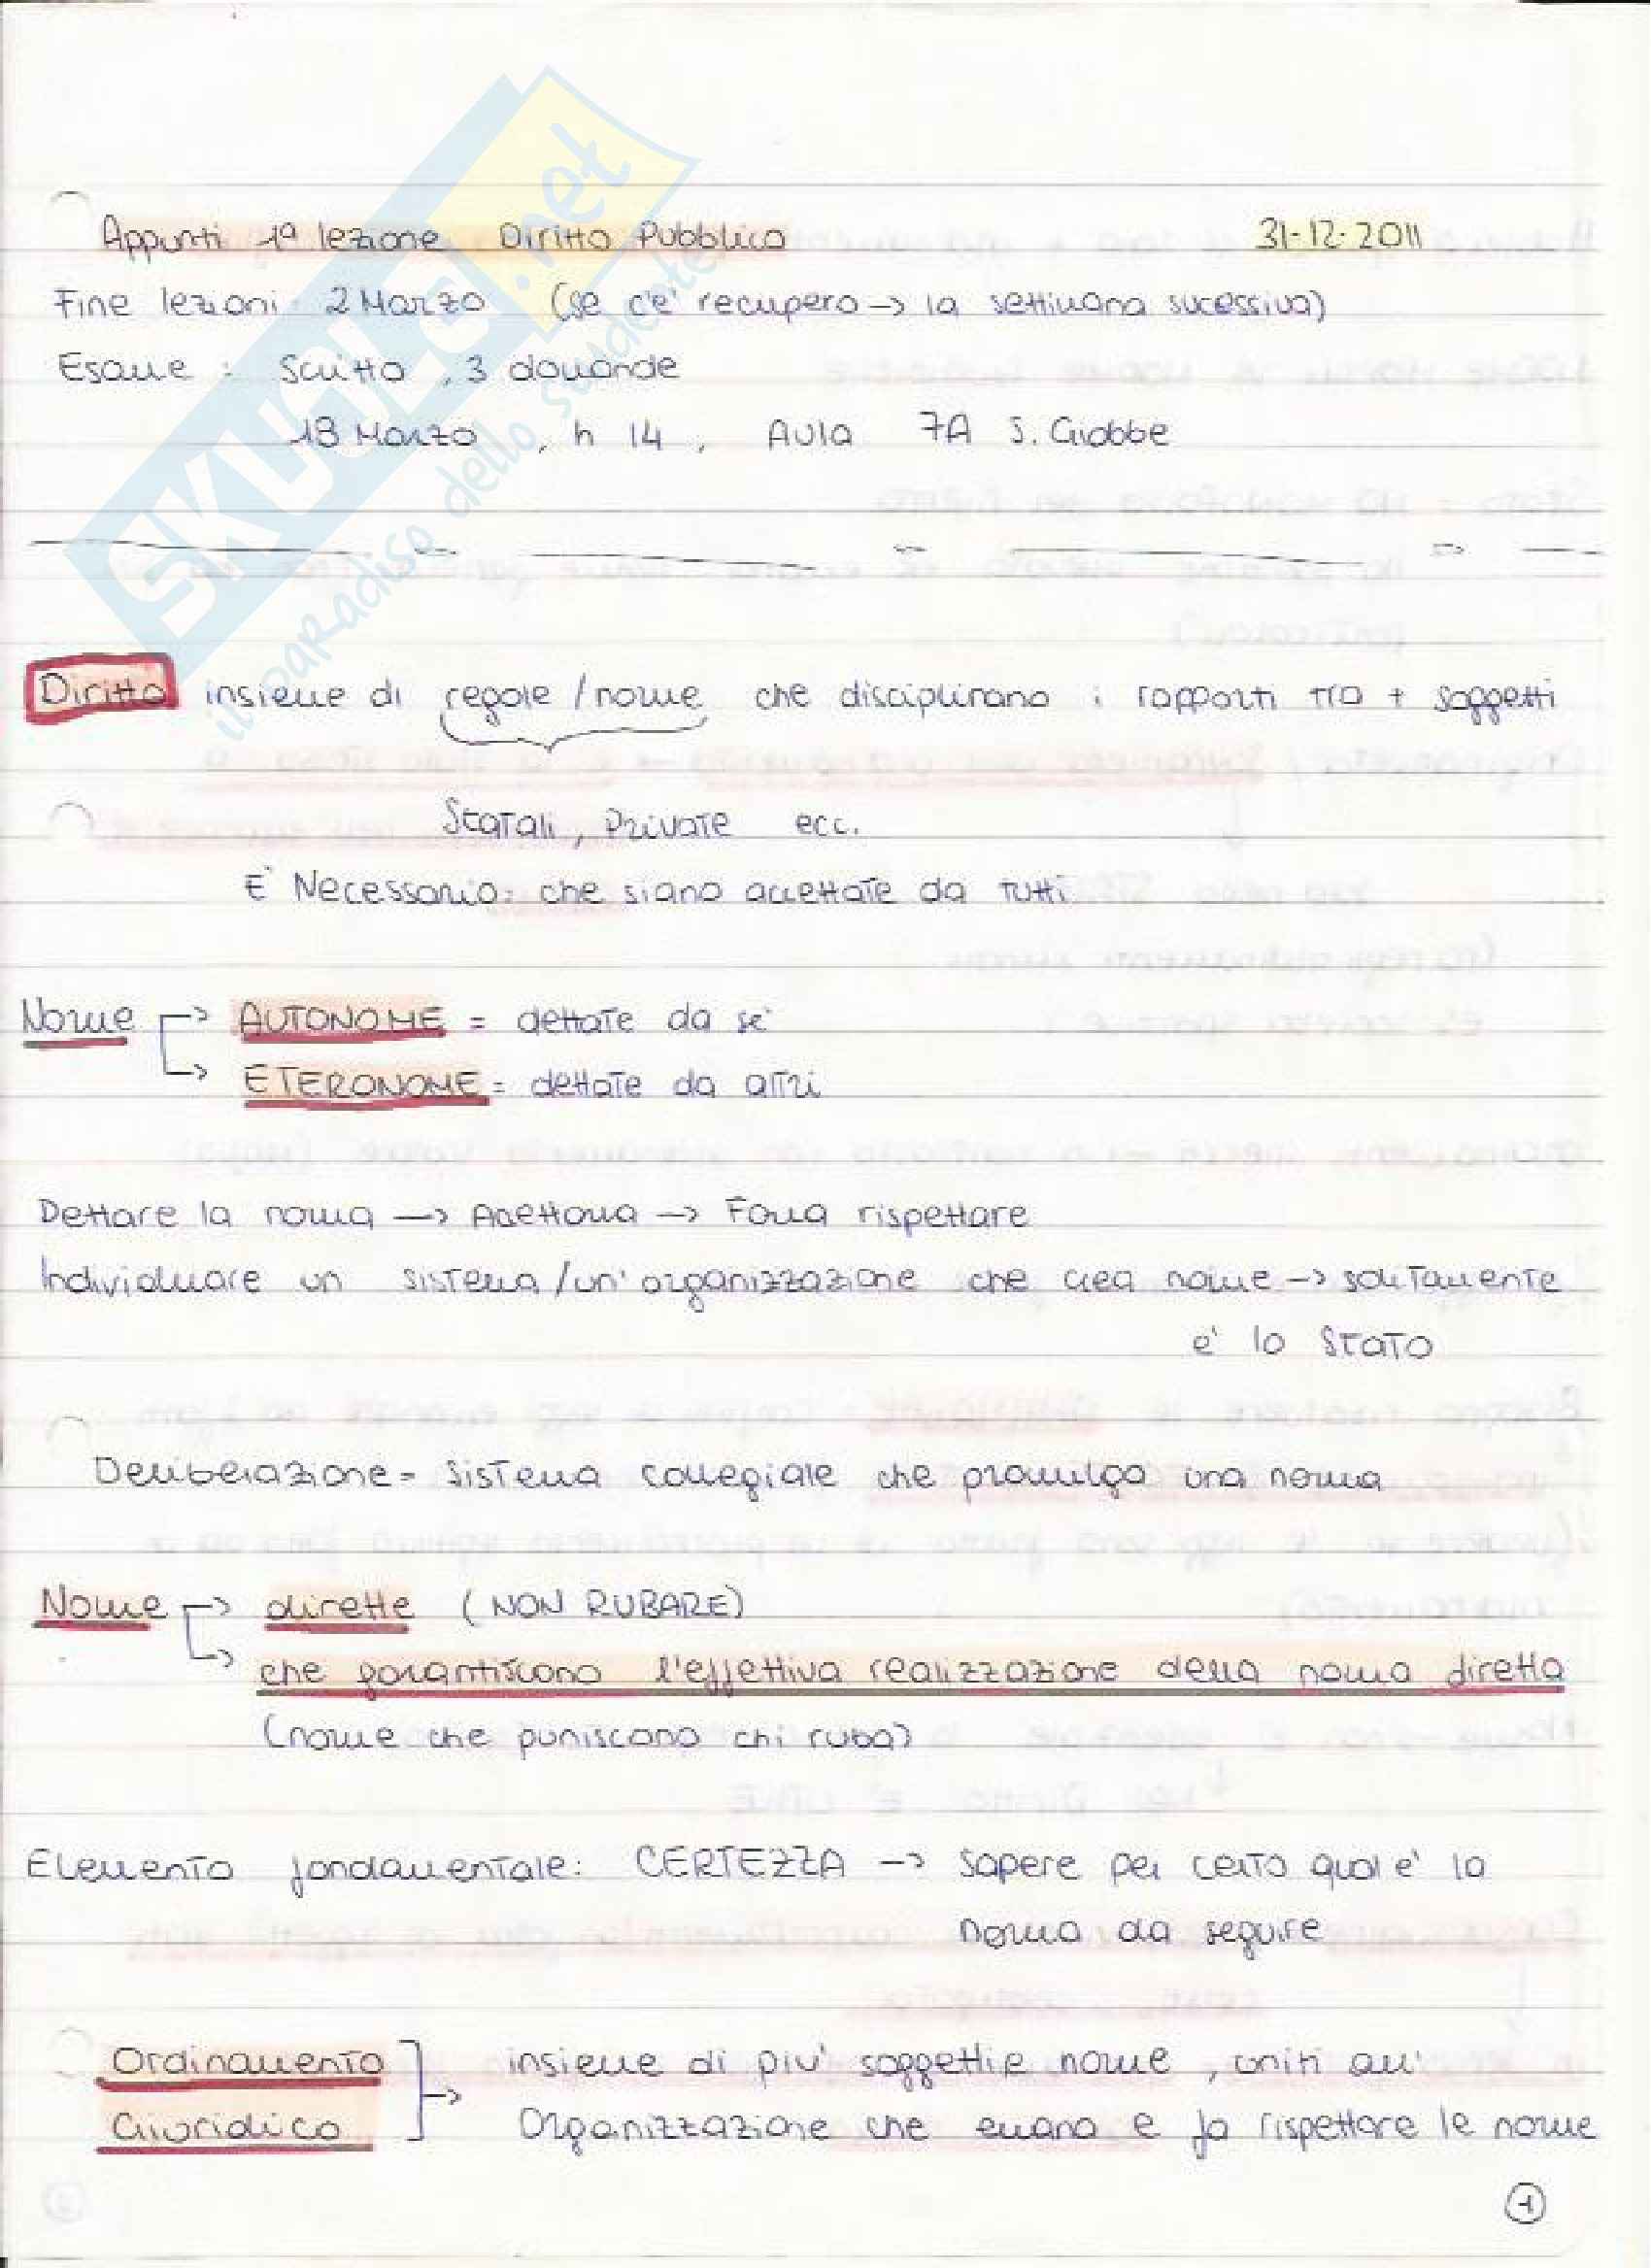 SKUOLA.net
il paradiso dello studente
Appunti 1ª lezione Diritto Pubblico 31-12-2011
Fine lezioni: 2 Marzo (se c'e' recupero -> la settimana sucessiva)
Esame : Scritto , 3 domande
18 Marzo , h 14 , Aula 7A S. Giobbe
Diritto insieme di regole / norme che disciplinano i rapporti tra + soggetti
Statali, Private ecc.
E' Necessario: che siano accettate da tutti
Norme -> AUTONOME = dettate da se'
-> ETERONOME = dettate da altri
Dettare la norma -> Accettarla -> Farla rispettare
Individuare un sistema / un'organizzazione che crea norme -> solitamente
e' lo STATO
Deliberazione = sistema collegiale che promulga una norma
Norme -> dirette ( NON RUBARE)
-> che garantiscono l'effettiva realizzazione della norma diretta
(norme che puniscono chi ruba)
Elemento fondamentale: CERTEZZA -> sapere per certo qual e' la
norma da seguire
Ordinamento insieme di piu' soggetti e norme , uniti all'
Giuridico -> Organizzazione che emana e fa rispettare le norme
1